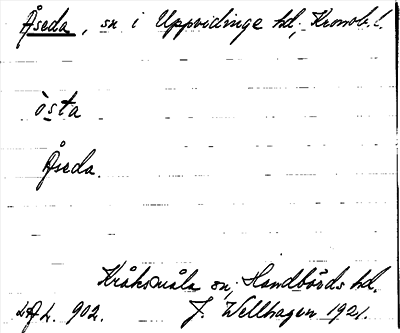 Åseda, sn i Uppvidinge hd, Kronob. l.
òsta
Åseda.
Kråksmåla sn, Handbörds hd.
J. Wellhagen 1921.
902.